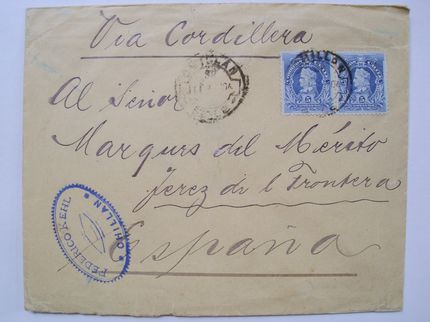 Via Cordillera
CHILLAN
CHILLAN
5 5
Al Señor
Marques del Mérito
Jerez de l Frontera
España
FEDERICO KEHL
CHILLAN